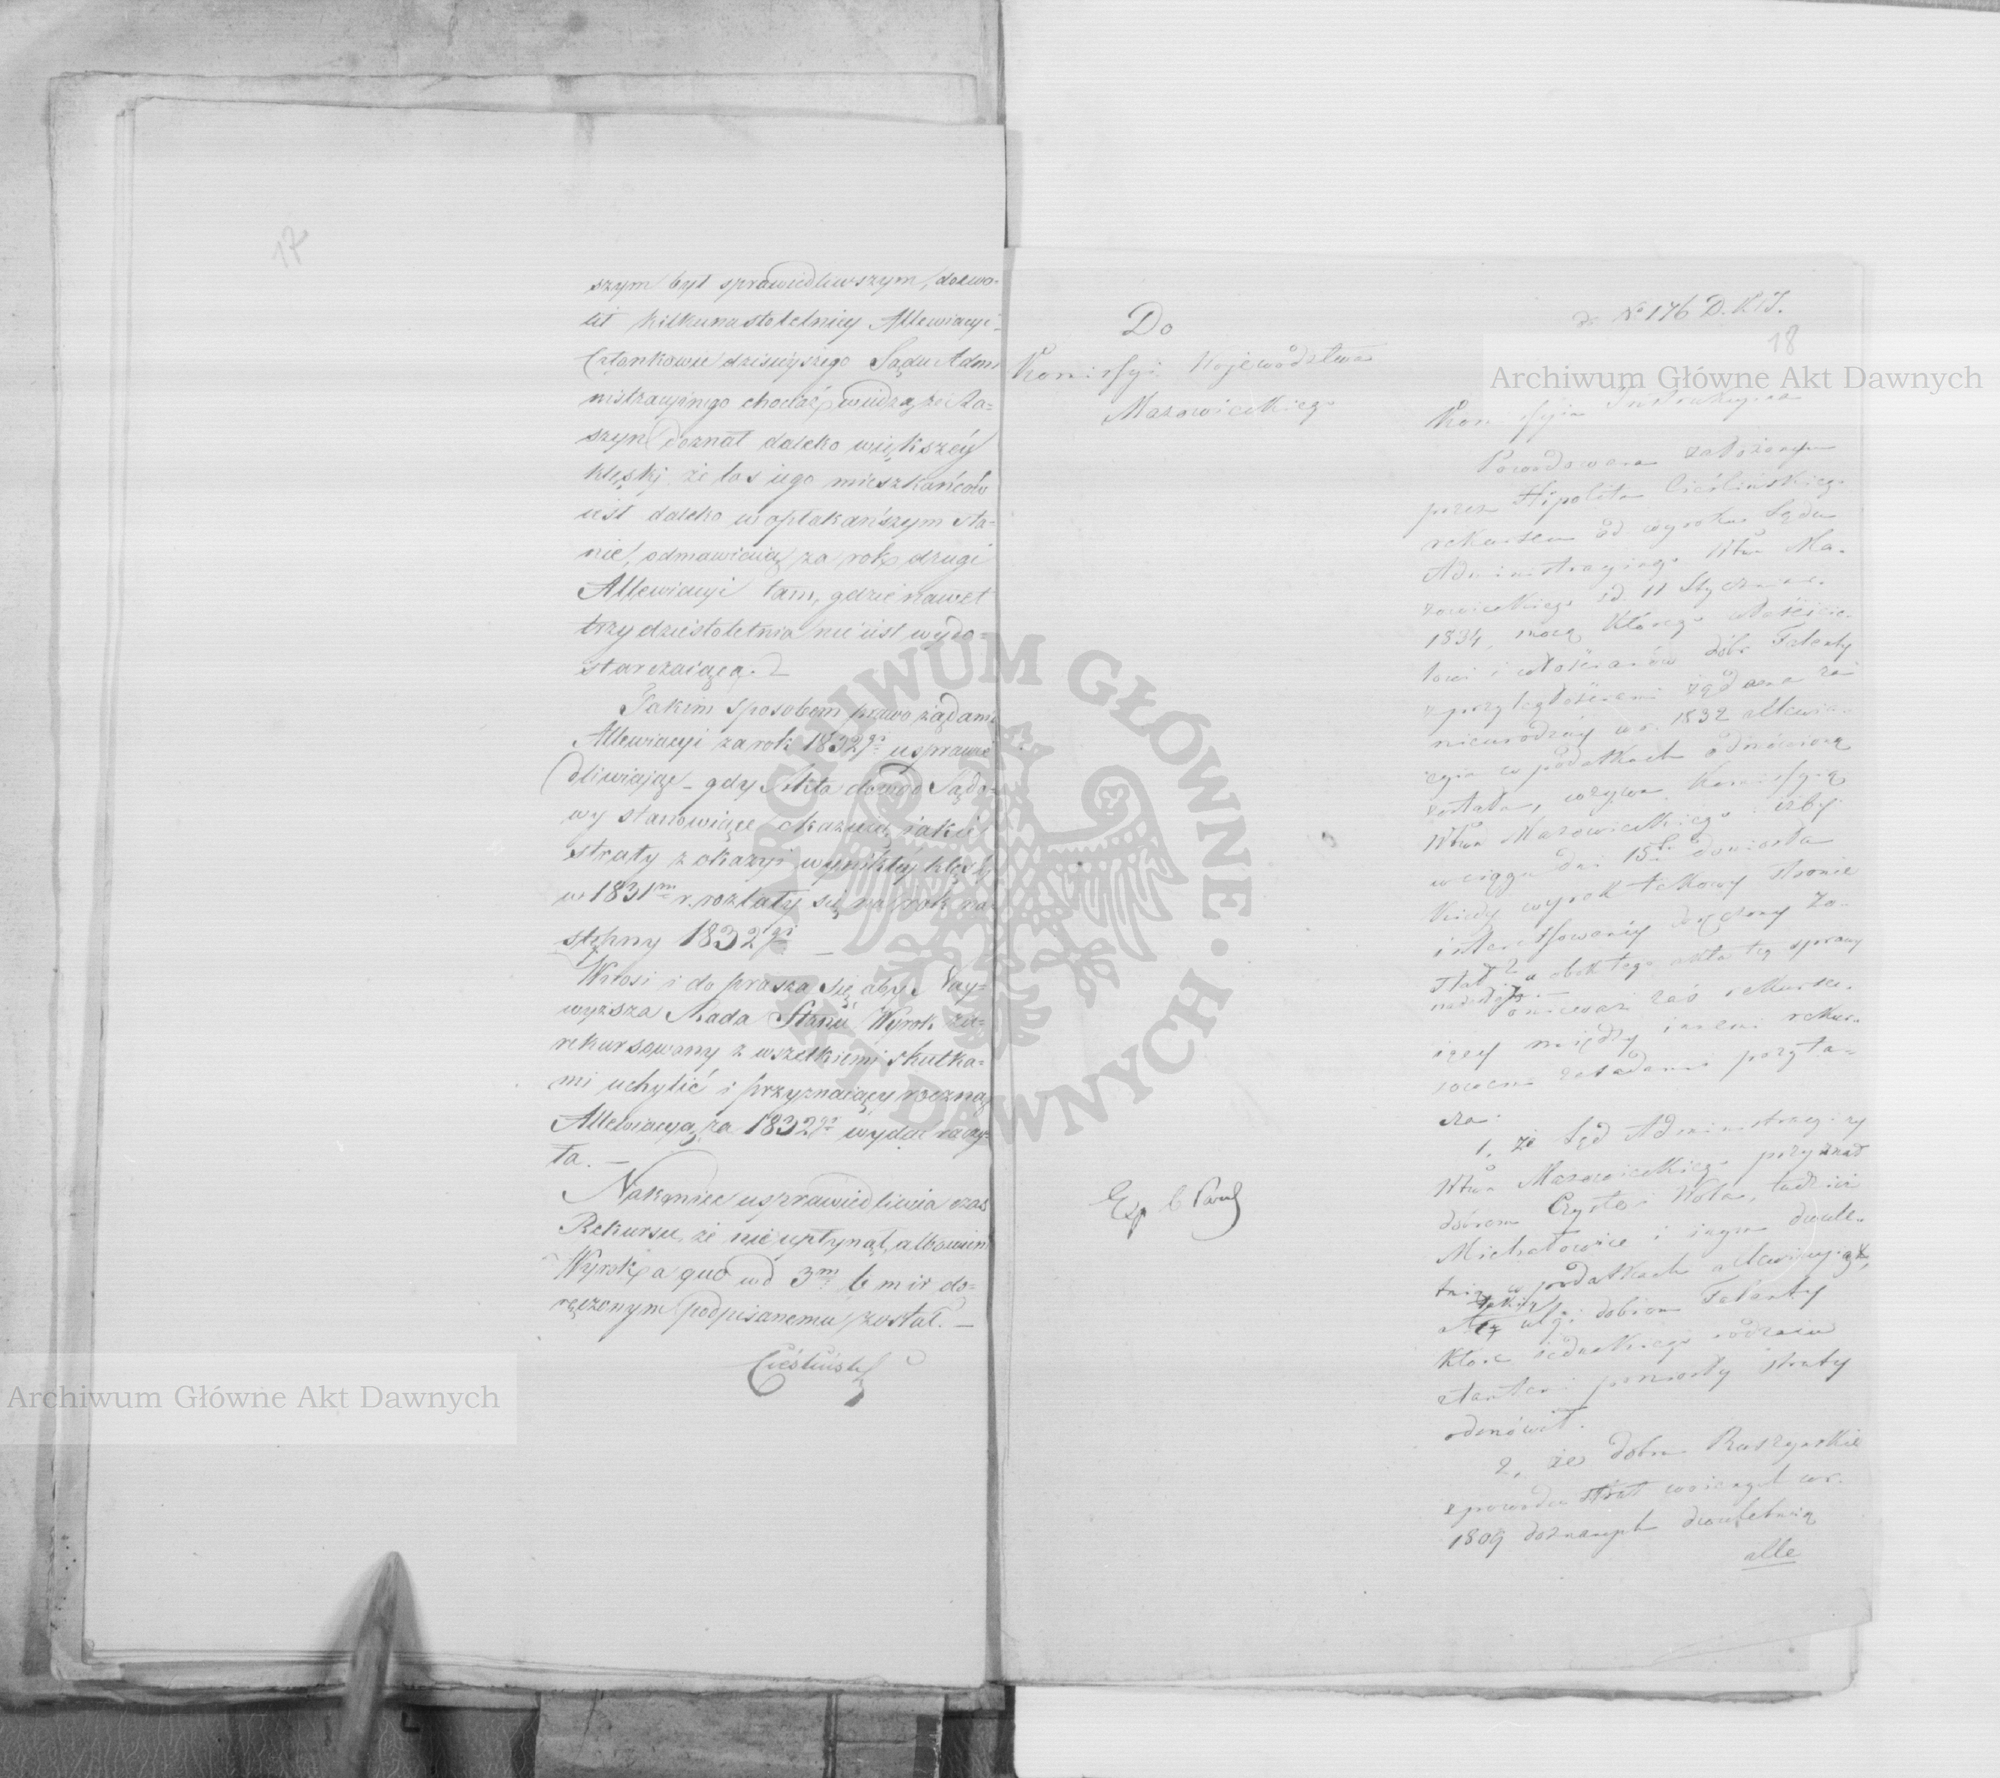 17
szym był sprawiedliwszym, dozwo-
lił kilkunastoletniey Allewiacyi
Członkowie dzisieyszego Sądu Admi
nistracyinego chociaż widzą że Ra=
szyn doznał daleko większéy
klęski, że los iego mieszkańców
iest daleko w opłakańszym sta=
nie, odmawiaią za rok drugi
Allewiacyi tam, gdzie nawet
trzydziestoletnia nie iest wydo=
starczaiącą.
Jakim sposobem prawo żądania
Allewiacyi za rok 1832go usprawie
dliwiając - gdy Akta dowód Sądo=
wy stanowiące okazuią, iakie
straty z okazyi wynikłéy klęski
w 1831m r. rozlały się na rok na
stępny 1832gi —
Wnosi i do prasza się aby Nay=
wyższa Rada Stanu Wyrok za=
rekursowany z wszelkiemi skutka=
mi uchylić i przyznaiący roczną
Allewiacyą za 1832gi wydać raczy=
ła. —
Nakoniec usprawiedliwia czas
Rekursu, że nie upłynął, albowiem
Wyrok a quo w d 3m b m ir do=
ręczonym podpisanemu został. —
Cieśliński
Do
Kommissyi Województwa
Mazowieckiego
Exp
No 176 D.K.I.
18
Kommissyia Instrukcyina
Powodowana założonym
przez Hipolita Cieślińskiego
rekursem od wyroku Sądu
Administracyinego Wtwa Ma-
zowieckiego z d. 11 Stycznia r.
1834, mocą którego właścicie-
lowi i włościanów dóbr Falenty
z przyległościami żądana za
nieurodzay w r. 1832 allewia-
cyia w podatkach odmówioną
została, wzywa Kommissyią
Wtwa Mazowieckiego iżby
w ciągu dni 15tu doniosła
kiedy wyrok takowy stronie
interessowanéy doręczony zo-
stał a obok tego akta téy sprawy
nadesłała.
Ponieważ zaś rekursu-
iący między innemi rekur-
sowemi zasadami przyta-
cza:
1, że Sąd Administracyiny
Wtwa Mazowieckiego przyznał
dobrom Czyste, Wola, tudzież
Michałowice i innym dwule-
tnią w podatkach allewiacyią,
a takiéy ulgi dobrom Falenty
które iednakiego rodzaiu
 poniosły straty
odmówił.
2, że dobra Raszyńskie
z powodu strat woiennych w r.
1809 doznanych dwuletnią
alle
Archiwum Główne Akt Dawnych
Archiwum Główne Akt Dawnych
ARCHIWUM GŁÓWNE AKT DAWNYCH